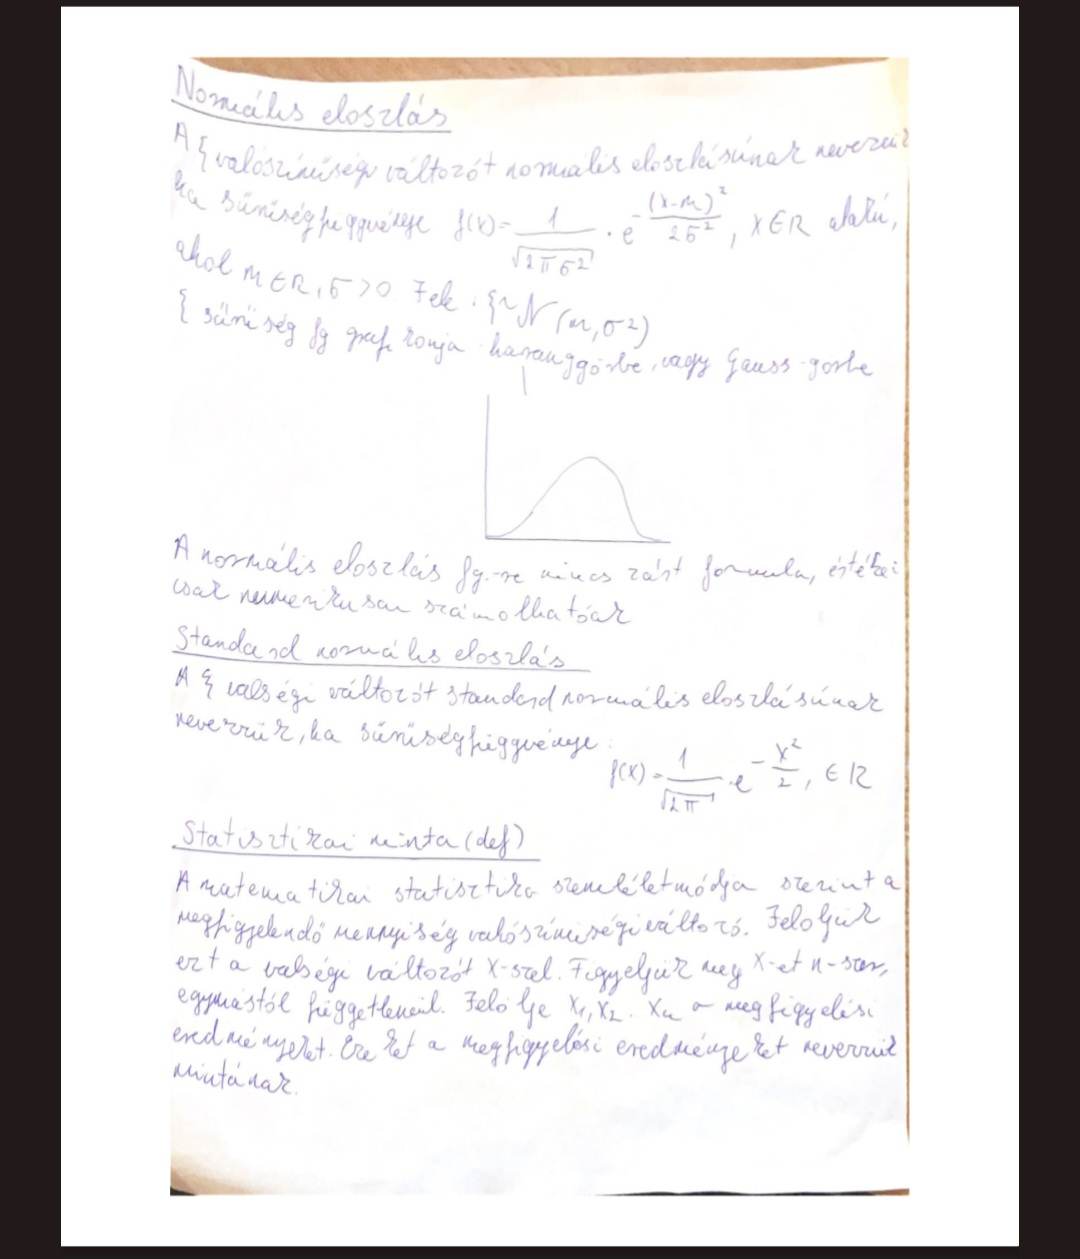 Normális eloszlás
A ξ valószínűségi változót normális eloszlásúnak nevezzük
ha sűrűségfüggvénye f(x)= 1/√(2πσ²) · e^(-(x-m)²/(2σ²)), x∈R alakú,
ahol m∈R, σ>0. Jele: ξ~N(m,σ²)
ξ sűrűség fg grafikonja haranggörbe, vagy Gauss-görbe
A normális eloszlás fg.-re nincs zárt formula, értékei
csak numerikusan számolhatóak
Standard normális eloszlás
A ξ valségi változót standard normális eloszlásúnak
nevezzük, ha sűrűségfüggvénye:
f(x)= 1/√(2π) · e^(-x²/2), ∈R
Statisztikai minta (def)
A matematikai statisztika szemléletmódja szerint a
megfigyelendő mennyiség valószínűségi változó. Jelöljük
ezt a valségi változót X-szel. Figyeljük meg X-et n-szer,
egymástól függetlenül. Jelölje X₁, X₂. Xₙ a megfigyelési
eredményeket. Ezeket a megfigyelési eredményeket nevezzük
mintának.